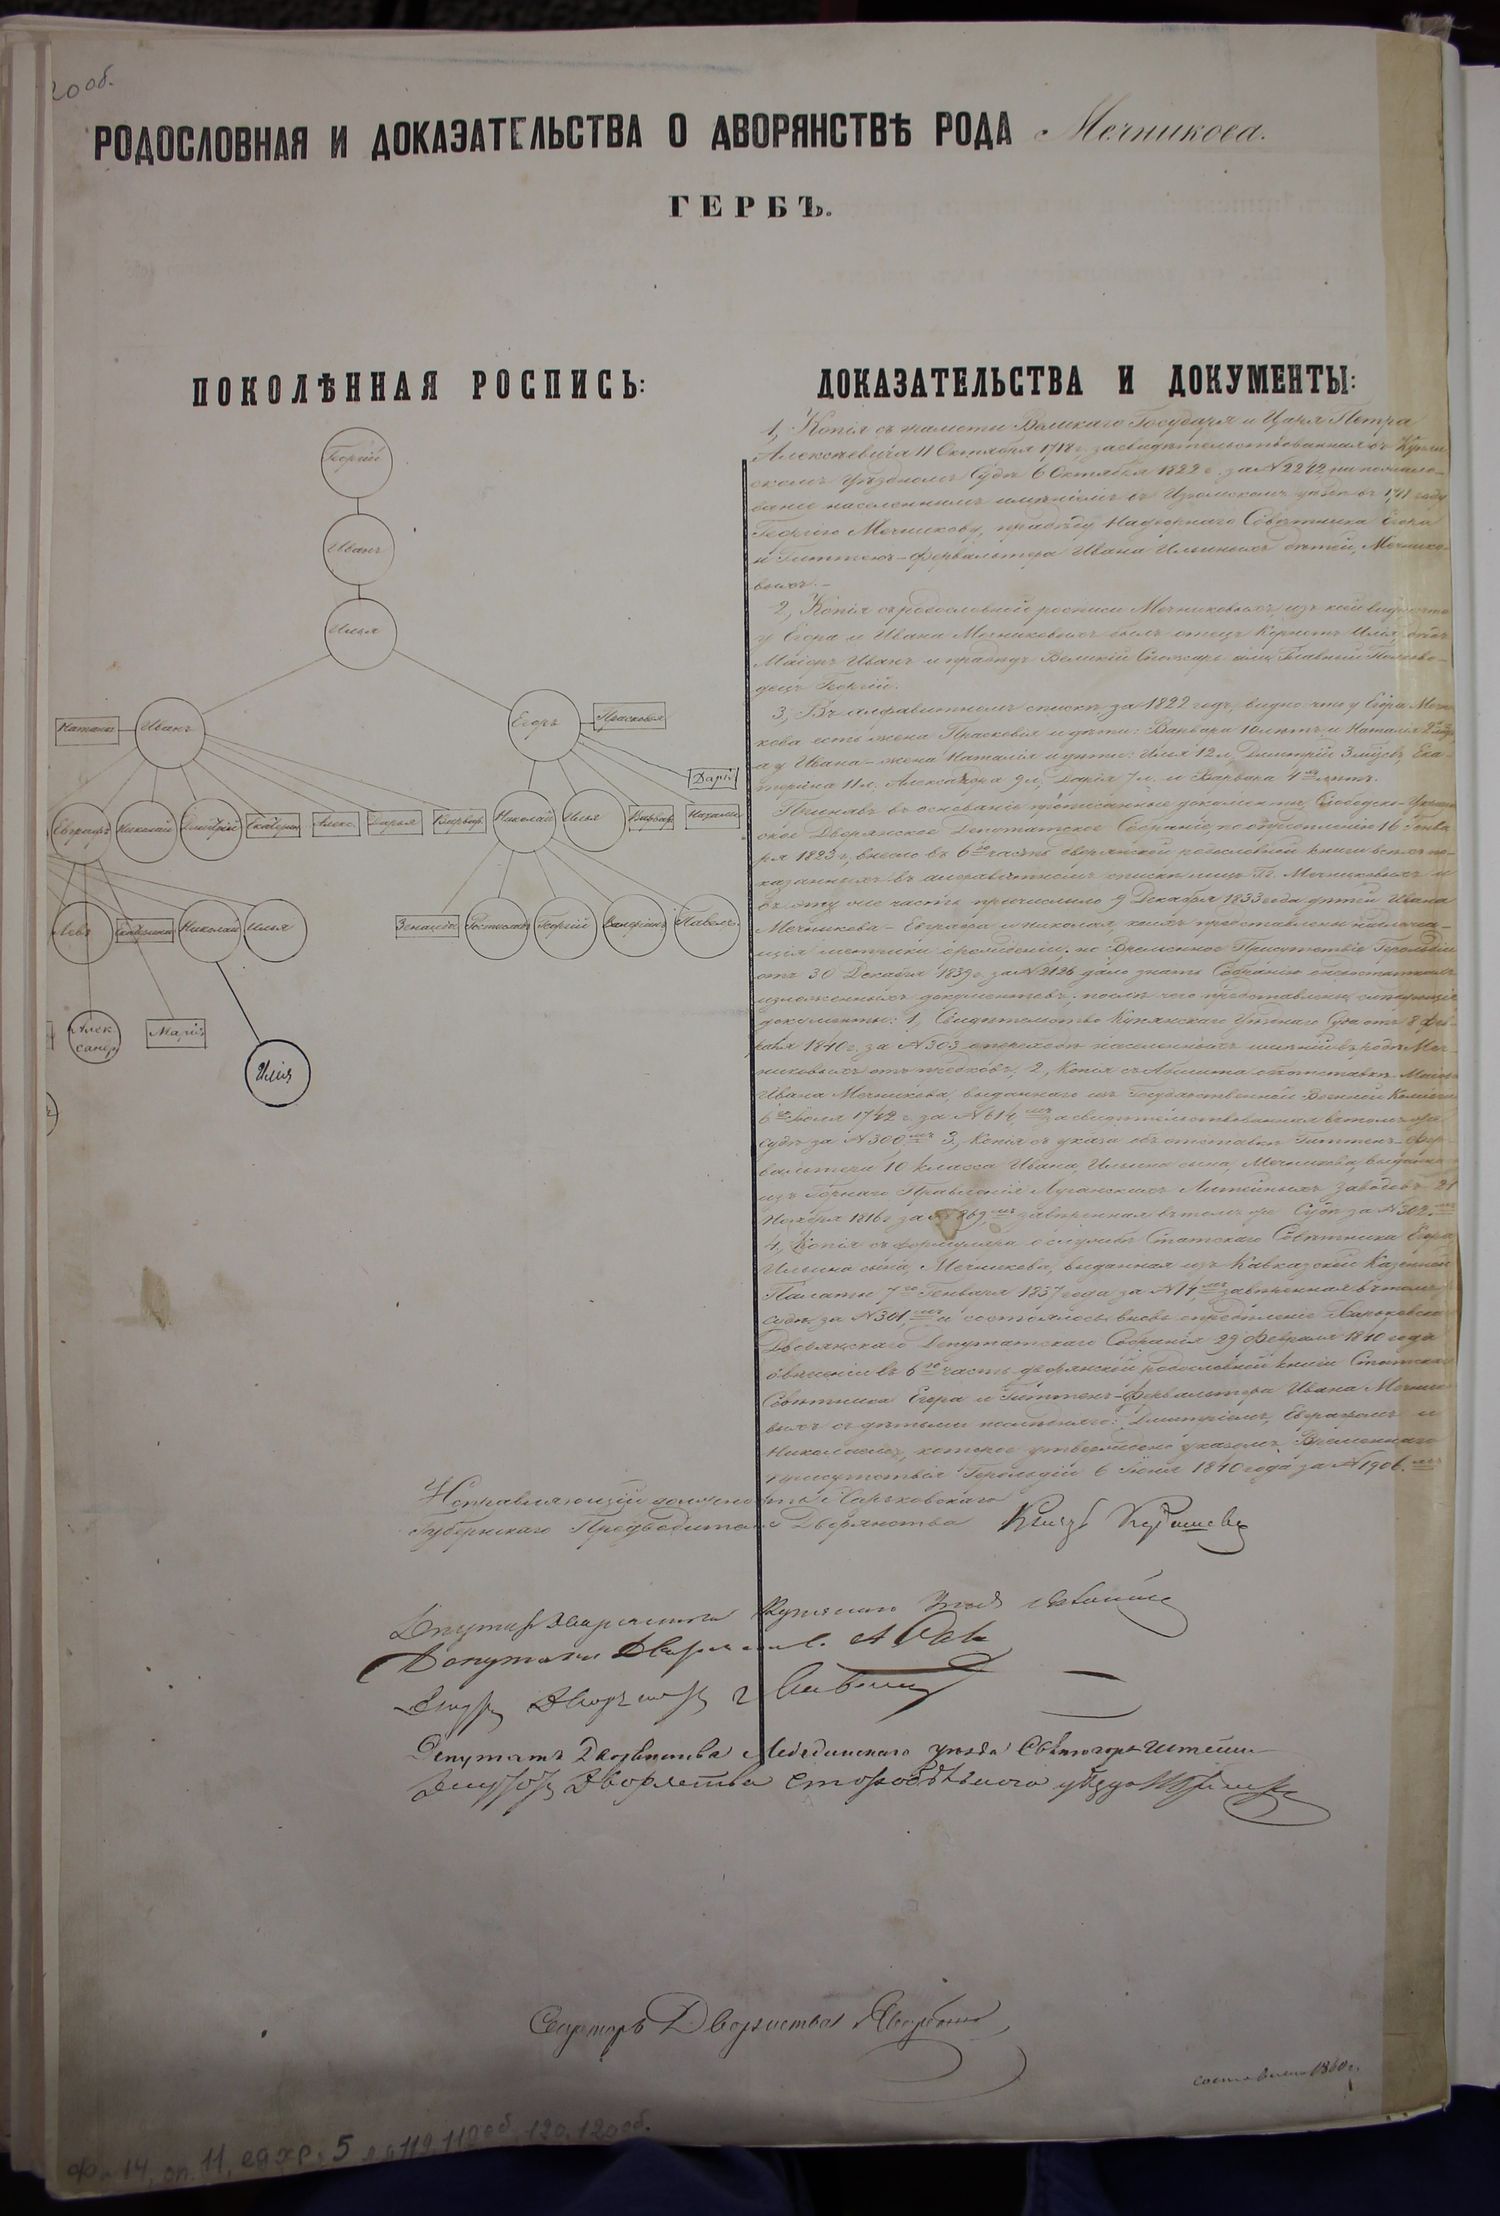 20 об.
РОДОСЛОВНАЯ И ДОКАЗАТЕЛЬСТВА О ДВОРЯНСТВѢ РОДА Мечникова.
ГЕРБЪ.
ПОКОЛѢННАЯ РОСПИСЬ:
Георгій
Иванъ
Илья
Наталія Иванъ Егоръ Прасковья
Дарія
Евграфъ Николай Дмитрій Екатерина Алекс. Дарья Варвар. Николай Илья Варвар. Наталія
Левъ Екатерина Николай Илья Зенаида Ростиславъ Георгій Валеріанъ Павелъ
Алек
сандр Марія
Илія
ДОКАЗАТЕЛЬСТВА И ДОКУМЕНТЫ:
1, Копія съ грамоты Великаго Государя и Царя Петра
Алексѣевича 11 Октября 1718 г. засвидѣтельствованная въ Купян
скомъ Уѣздномъ Судѣ 6 Октября 1822 г. за № 2242, на пожало-
ваніе населеннымъ имѣніемъ въ Изюмскомъ уѣздѣ въ 1711 году
Георгію Мечникову, прадѣду Надворнаго Совѣтника Егора
и Гиттенъ-фервальтера Ивана Ильиныхъ дѣтей, Мечнико-
выхъ.-
2, Копія съ родословной росписи Мечниковыхъ, изъ коей видно что
у Егора и Ивана Мечниковыхъ былъ отецъ Корнетъ Илія, дѣдъ
Маіоръ Иванъ и прадѣдъ Великій Спожарь или Главный Полково-
децъ Георгій.
3, Въ алфавитномъ спискѣ за 1822 годъ, видно что у Егора Мечни
кова есть жена Прасковья и дѣти: Варвара 10 лѣтъ и Наталія
а у Ивана - жена Наталія и дѣти: Илья 12 л, Дмитрій 3 мѣс. Ека-
терина 11 л. Александра 9 л, Дарія 7 л. и Варвара 4 лѣтъ.
Принявъ въ основаніе прописанные документы, Слободско-Украин
ское Дворянское Депутатское Собраніе, по опредѣленію 16 Генва
ря 1823 г, внесло въ 6ю часть дворянской родословной книги всѣхъ по-
казанныхъ въ алфавитномъ спискѣ лицъ Гг. Мечниковыхъ и
въ эту же часть причислило 9 Декабря 1833 года дѣтей Ивана
Мечникова - Евграфа и Николая, коихъ представлены надлежа-
щія метрики о рожденіи, но Временное Присутствіе Герольдіи
отъ 30 Декабря 1839 г. за № 2126 дало знать Собранію о недостаткахъ
изложенныхъ документовъ; послѣ чего представлены слѣдующіе
документы: 1, Свидѣтельство Купянскаго Уѣзднаго Суда отъ 8 Фев-
раля 1840 г. за № 303 о переходѣ населенныхъ имѣній въ родѣ Меч-
никовыхъ отъ предковъ, 2, Копія съ Абшита объ отставкѣ Маіора
Ивана Мечникова, выданнаго изъ Государственной Военной Коллегіи
6го Іюля 1742 г. за № 614, засвидѣтельствованная въ томъ же
Судѣ за № 300, 3, Копія съ указа объ отставкѣ Гиттенъ-фер-
вальтера 10 класса Ивана, Ильина сына, Мечникова, выданна
изъ Горнаго Правленія Луганскихъ Литейныхъ заводовъ 21
Ноября 1816 г. за № 869 завѣренная въ томъ же Судѣ за № 302.
4, Копія съ формуляра о службѣ Статскаго Совѣтника Егора,
Ильина сына, Мечникова, выданная изъ Кавказской Казенной
Палаты 7го Генваря 1837 года за № 14, завѣренная въ томъ
судѣ за № 301, и состоялось вновь опредѣленіе Харьковска
Дворянскаго Депутатскаго Собранія 29 Февраля 1840 года
о внесеніи въ 6ю часть дворянской родословной книги Статскаго
Совѣтника Егора и Гиттенъ-фервальтера Ивана Мечнико
выхъ съ дѣтьми послѣдняго: Дмитріемъ, Евграфомъ и
Николаемъ, которое утверждено указомъ Временнаго
присутствія Герольдіи 6 Іюня 1840 года за № 1906.
Исправляющій должность Харьковскаго
Губернскаго Предводителя Дворянства Князь Кудашевъ
Депутатъ Дворянства Купянскаго
Депутатъ Дворянства
Депутатъ Дворянства
Депутатъ Дворянства Лебединскаго уѣзда
Депутатъ Дворянства Старобѣльскаго уѣзда
Секретарь Дворянства
составлена 1860 г.
Ф. 14, оп. 11, ед. хр. 5 л. 119, 119 об, 120, 120 об.